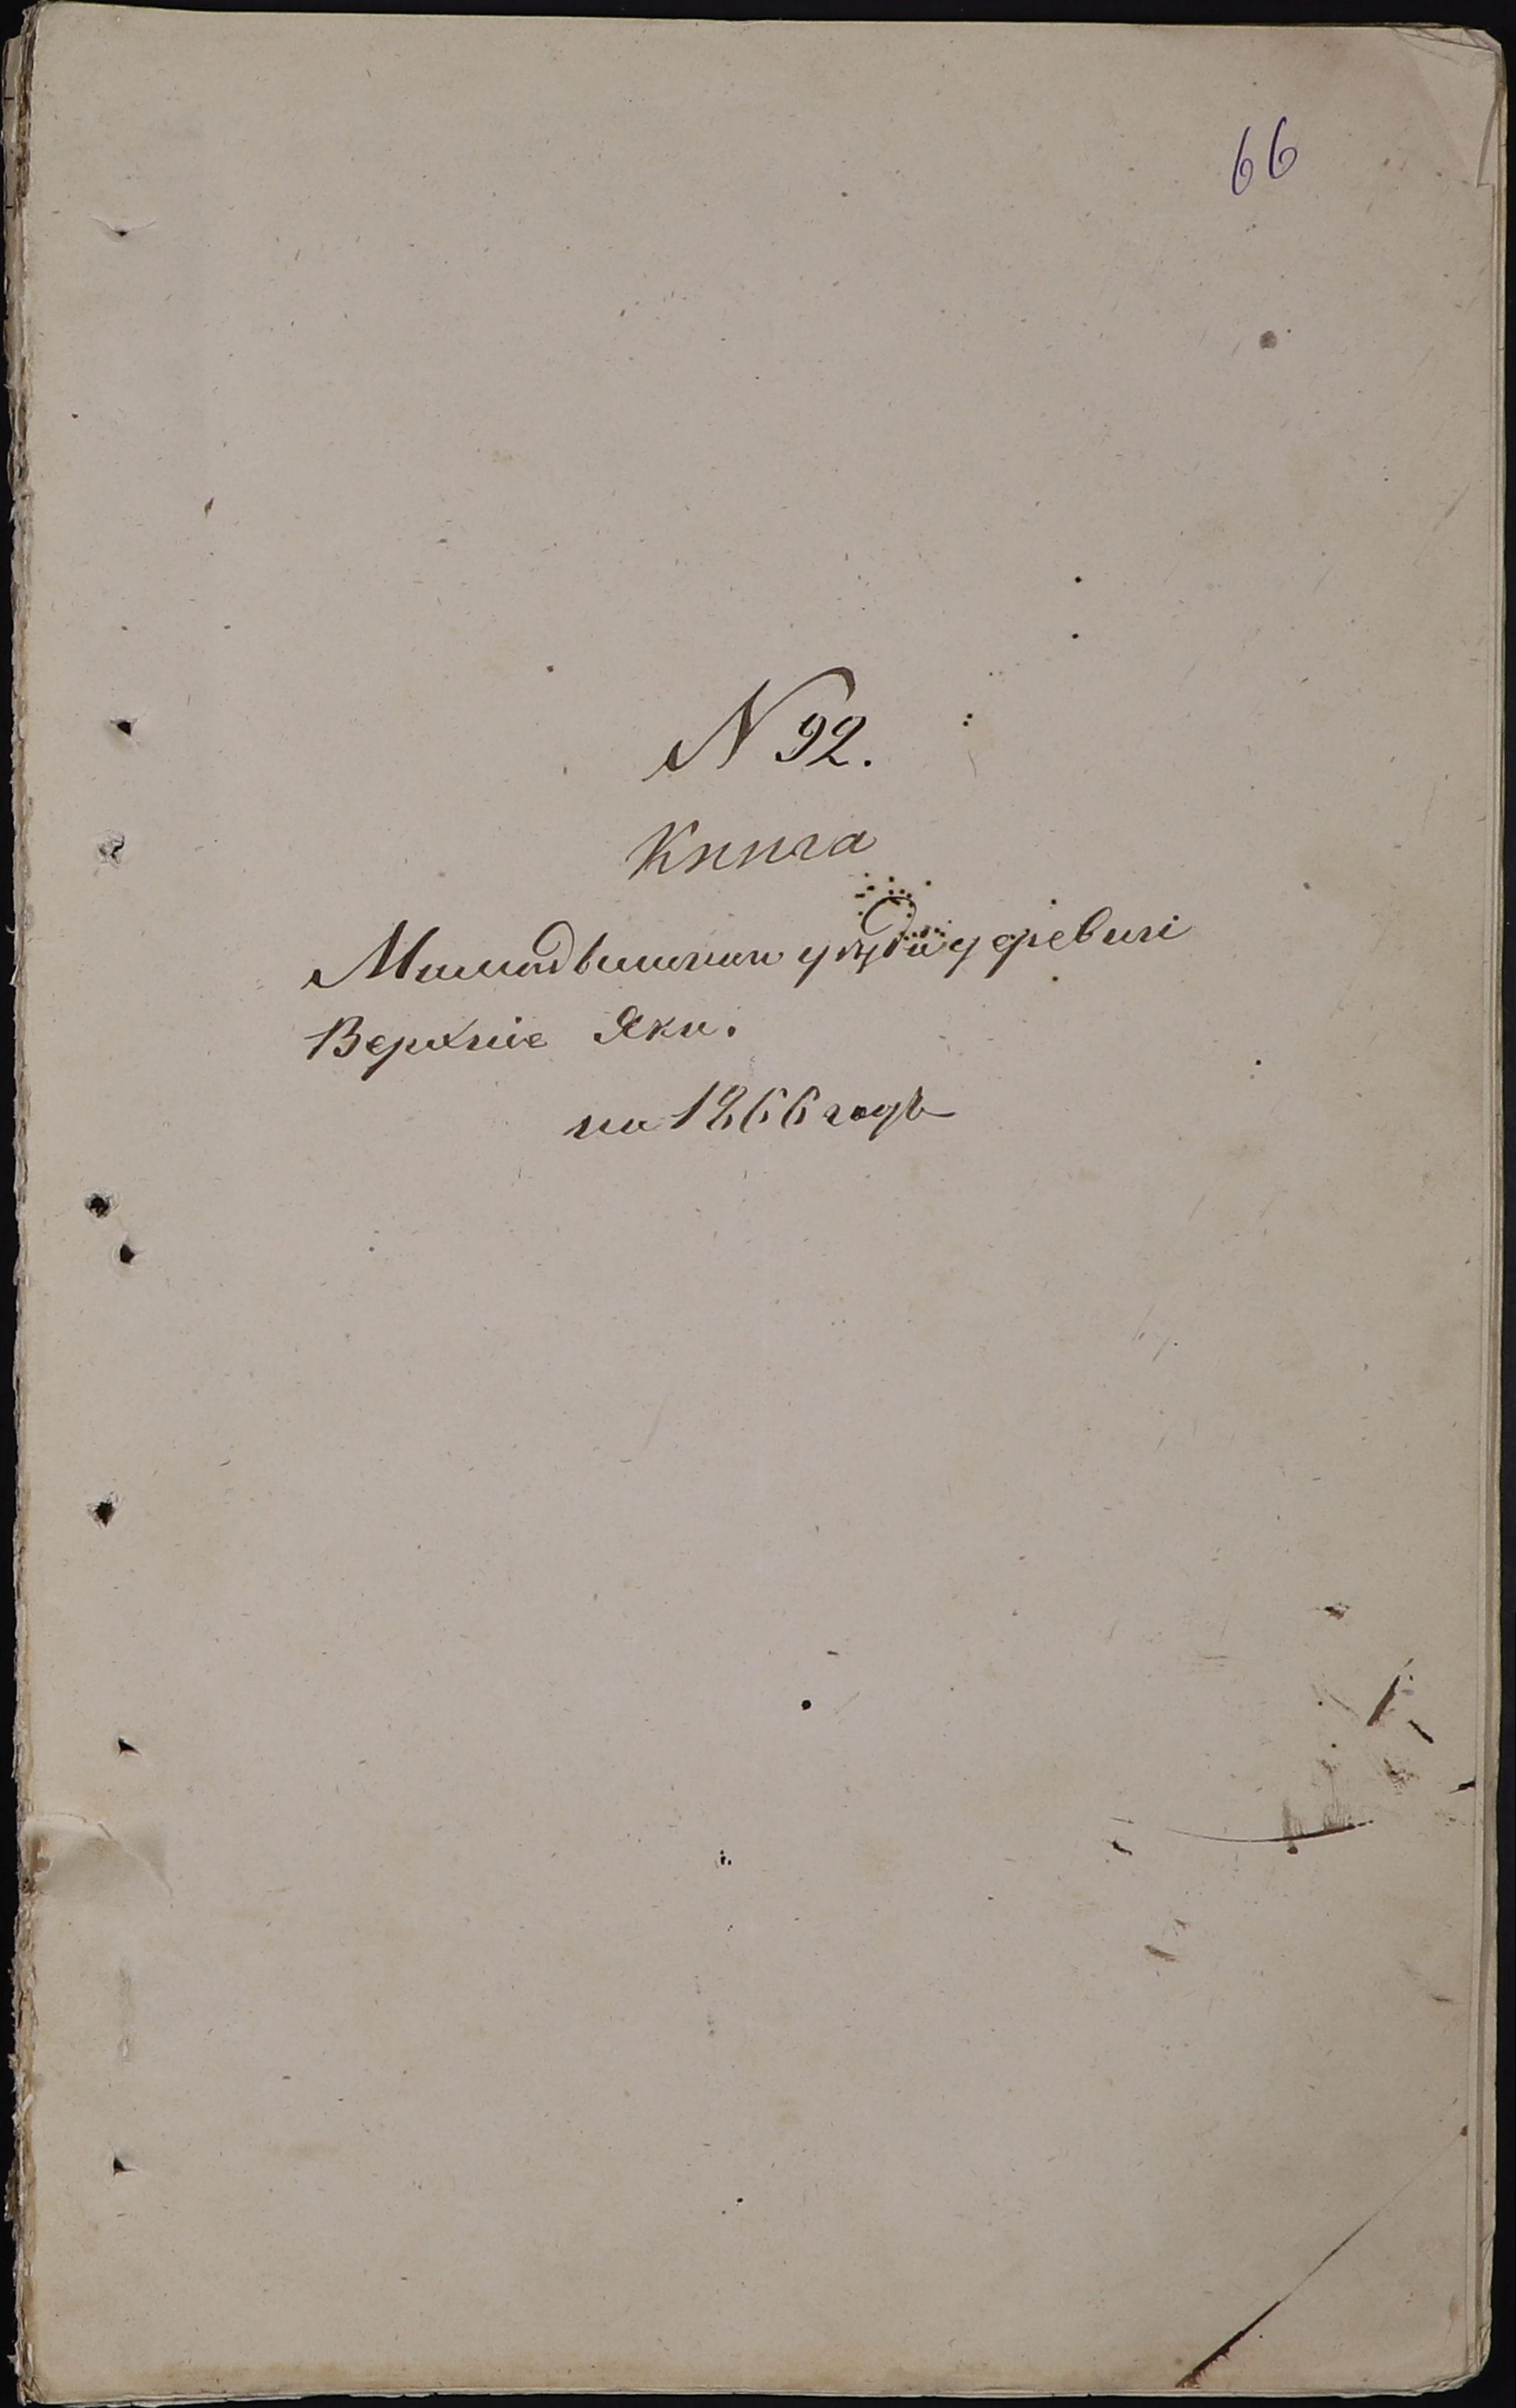 66
N 92.
Книга
Мамадышскаго уѣзда деревни
Верхніе Яки.
на 1866 годъ